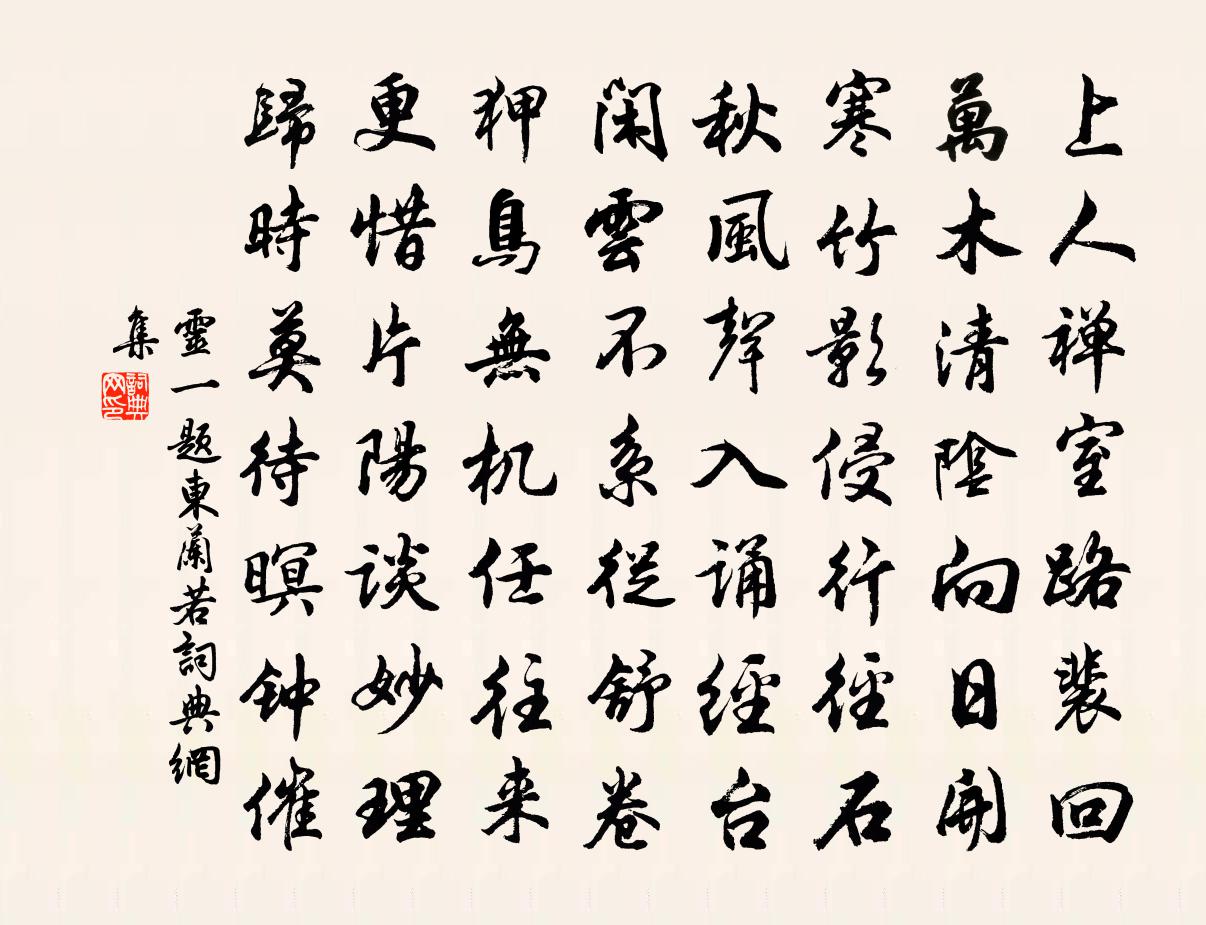 上人禅室路裴回
萬木清陰向日開
寒竹影侵行徑石
秋風聲入诵經台
閑雲不系從舒卷
狎鳥無机任往来
更惜片陽谈妙理
歸時莫待暝钟催
靈一题東蘭若詞典網
集
詞典网印